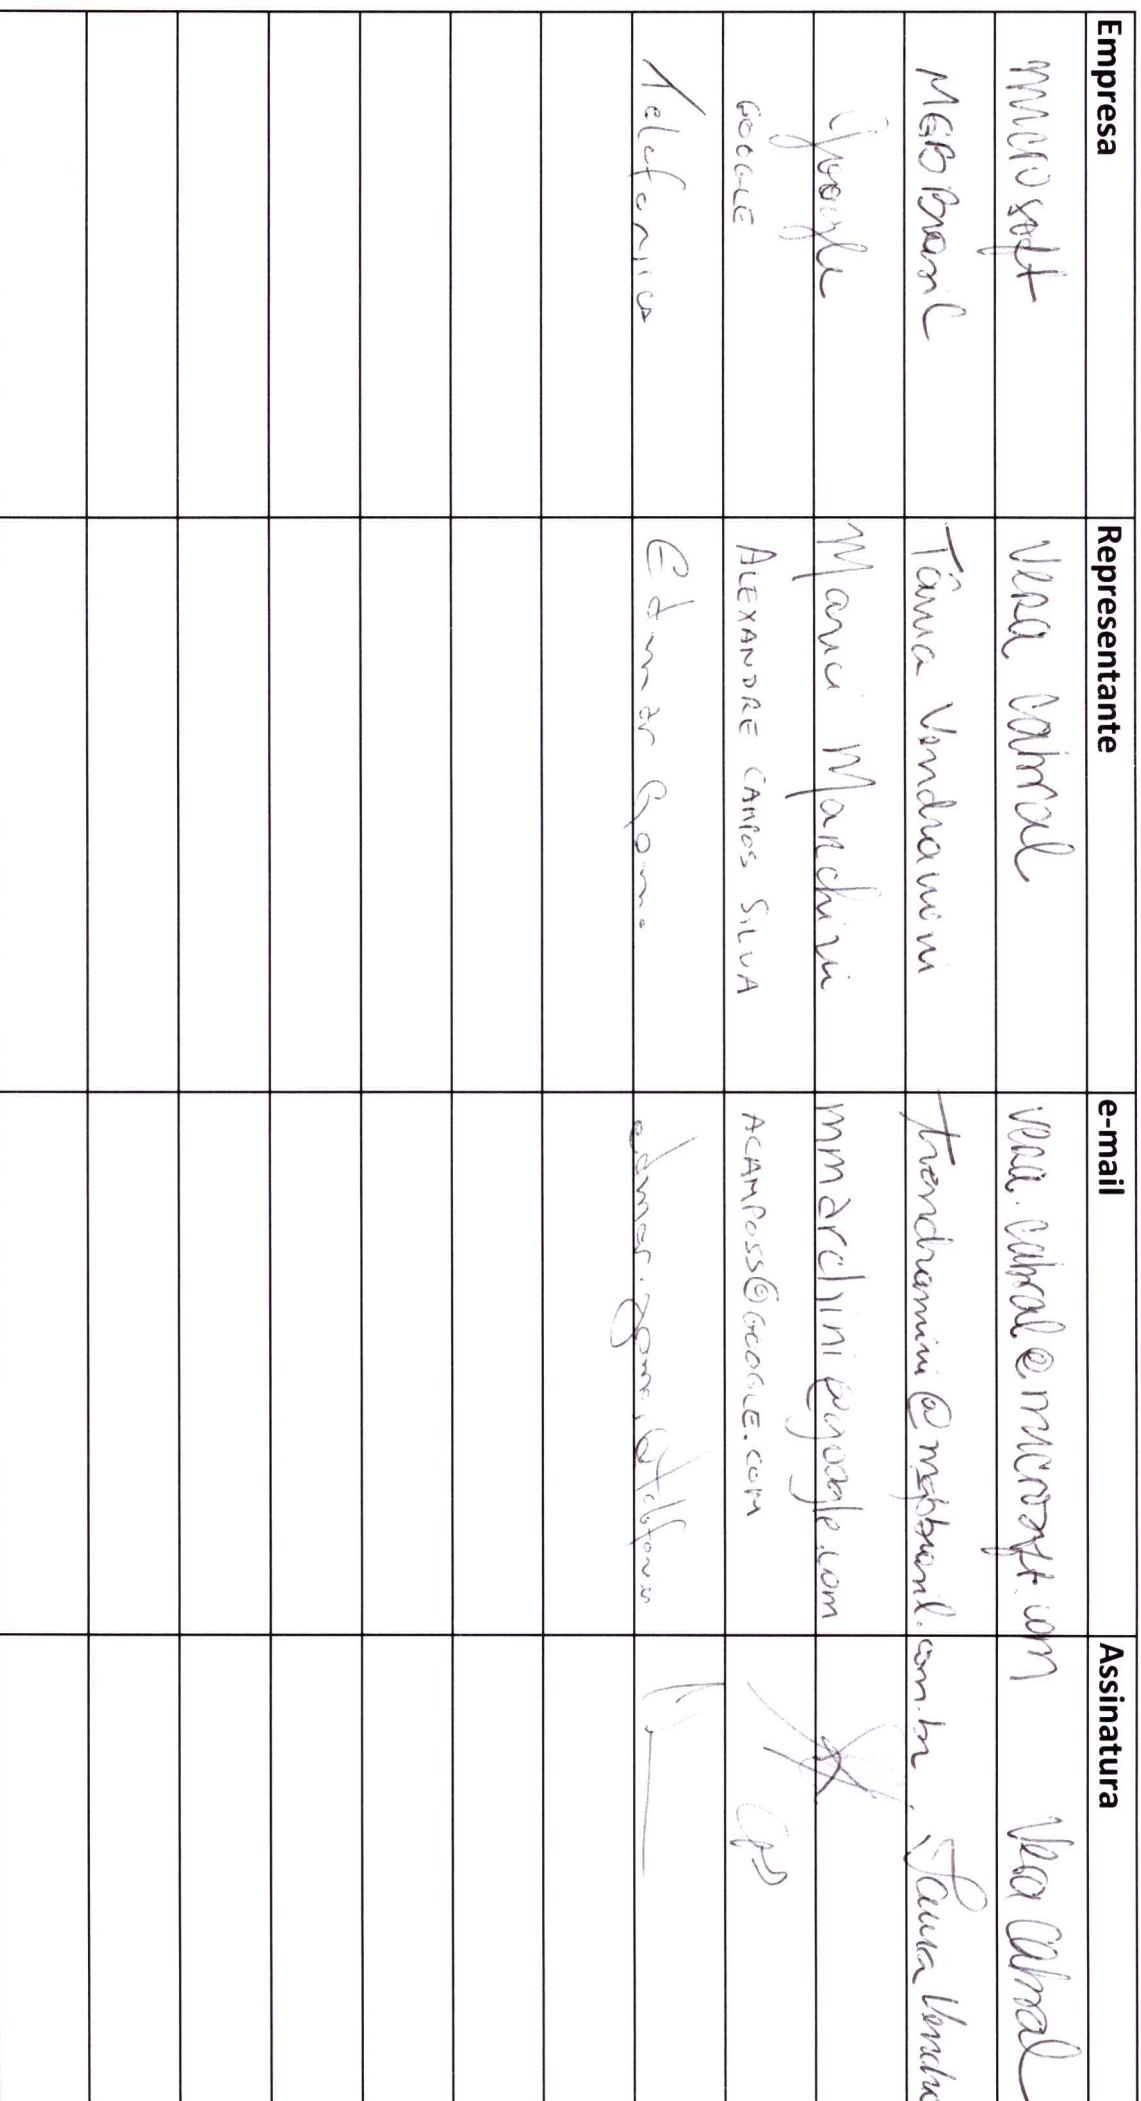 Empresa Representante e-mail Assinatura
Microsoft Vera Cabral vera.cabral@microsoft.com Vera Cabral
MGBBrasil Tânia Vendramini tvendramini@mgbbrasil.com.br Tânia
Google Marchini mmarchini@google.com
GOOGLE ALEXANDRE CAMPOS SILVA ACAMPOSS@GOOGLE.COM
Telefonica Edmar Gomes